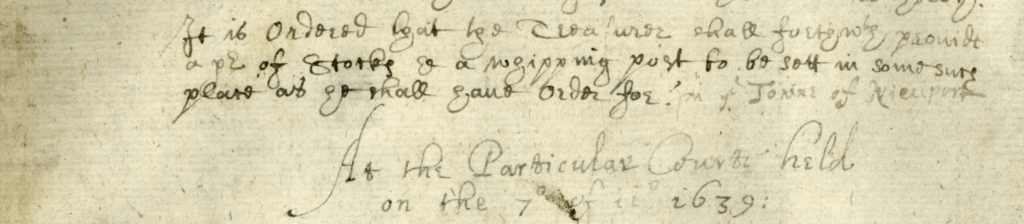 It is Ordered that the Treasurer shall forthwth provide
a pr of Stocks & a whipping post to be sett in some such
place as he shall have Order for: in ye Towne of Nieuport
At the Particular Courte held
on the 7° of 11° 1639: